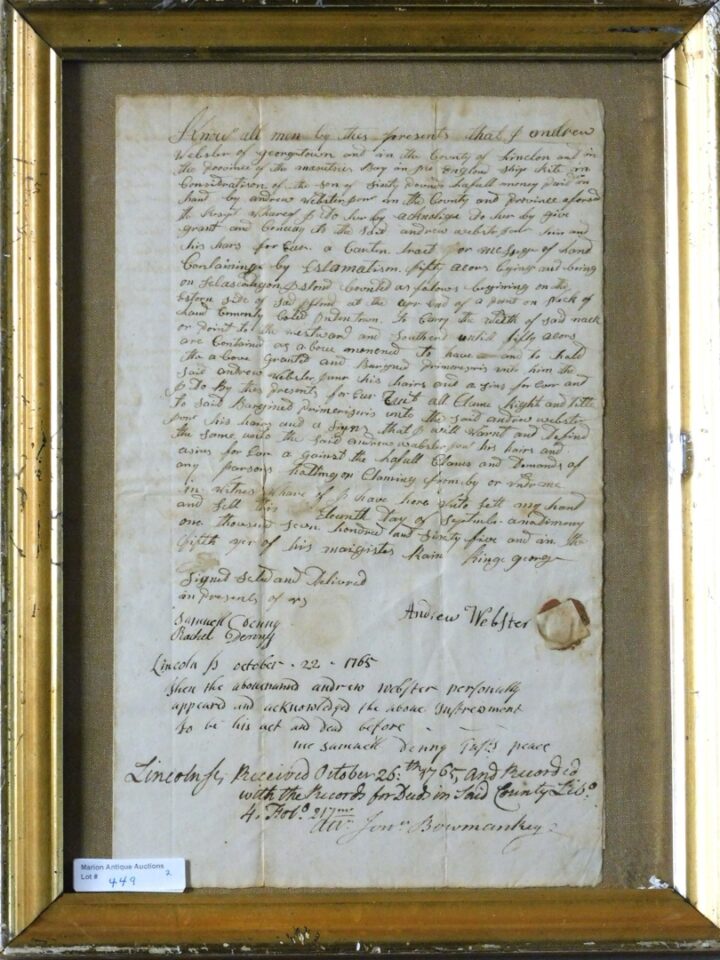 Know all men by thes presents that I andrew
Webster of georgtown and in the County of Lincelon and in
the province of the Bay in England ship rite in
Consideratison of the som of Sixty pounds Lafull money paid in
hand by andrew webster junr in the County and province aforsd
the Resipt whareof I do her by acknolige do her by give
grant and Convay to the said andrew webster junr him and
his hars for Eur a Carten tract or of Land
Containing by Estamatism fifty acors lying and being
on bounded as folows begining on the
side of sad at the end of a point or neck of
Land Comonly Caled town to Cary the width of said neck
or point to the westward and Southerd untill fifty acors
are Contained as above menened to have and to hold
the above granted and Bargned primeses unto him the
said andrew webster junr his hairs and a sins for Eur and
I do By thes presents for Eur Quit all Clame Right and title
to said Bargined primeses unto the said andrew webster
junr his hears and a signs that I will warnt and defend
the same unto the said andrew webster junr his hairs and
asins for Eur a gainst the Lafull Clames and Demands of
any parsons Claiming from by or undr me
in witnes whare of I have here unto sett my hand
and Sell this Eleventh day of September
one thousand Seven hundred and Sixty five and in the
fifth yer of his Kinge george
Signed Seled and Delivered
in presents of us
Samuell Denny
Rachel Denny
Andrew Webster
Lincoln ss october - 22 - 1765
then the abovenamd andrew Webster personally
appeard and acknowledged the above Instrement
to be his act and Dead before
me Samuell Denny Justs peace
Lincoln ss, Received October 26th 1765, And Recorded
with the Records for Deeds in Said County Libo.
4. Folo. 217
Attr. Jonn. Bowman Reg.
Marion Antique Auctions
Lot # 449 2